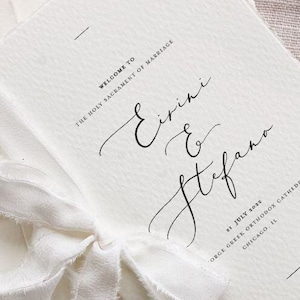 WELCOME TO
THE HOLY SACRAMENT OF MARRIAGE
Eirini
&
Stefano
21 JULY 2022
GEORGE GREEK ORTHODOX CATHEDRAL
CHICAGO, IL